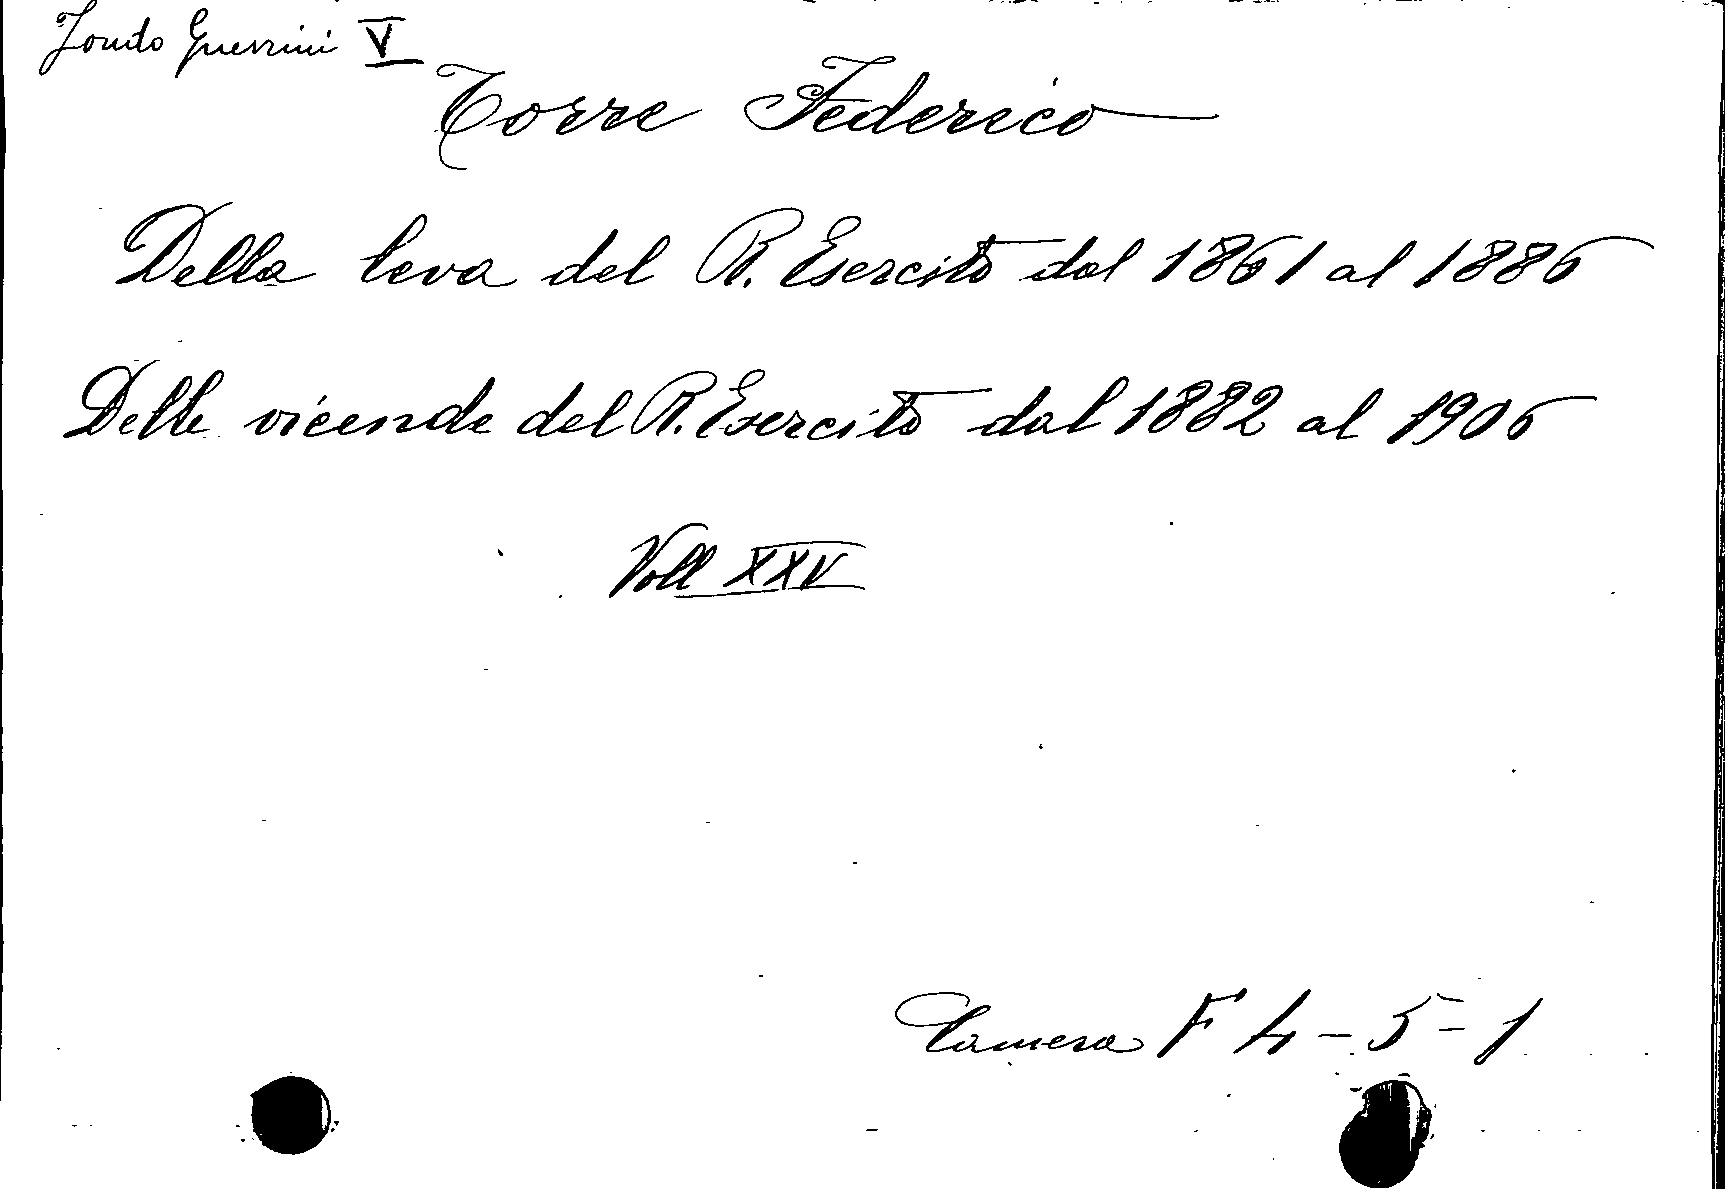 Fondo Guerrini V
Torre Federico
Della leva del R. Esercito dal 1861 al 1886
Delle vicende del R. Esercito dal 1882 al 1906
Voll XXV
Camera F 4 - 5 - 1